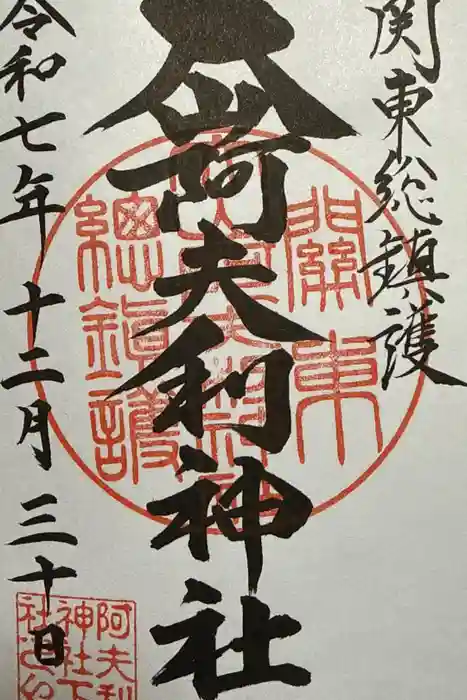 関東総鎮護
大山阿夫利神社
令和七年十二月三十日
關東
總鎮護
阿夫利
神社下
社